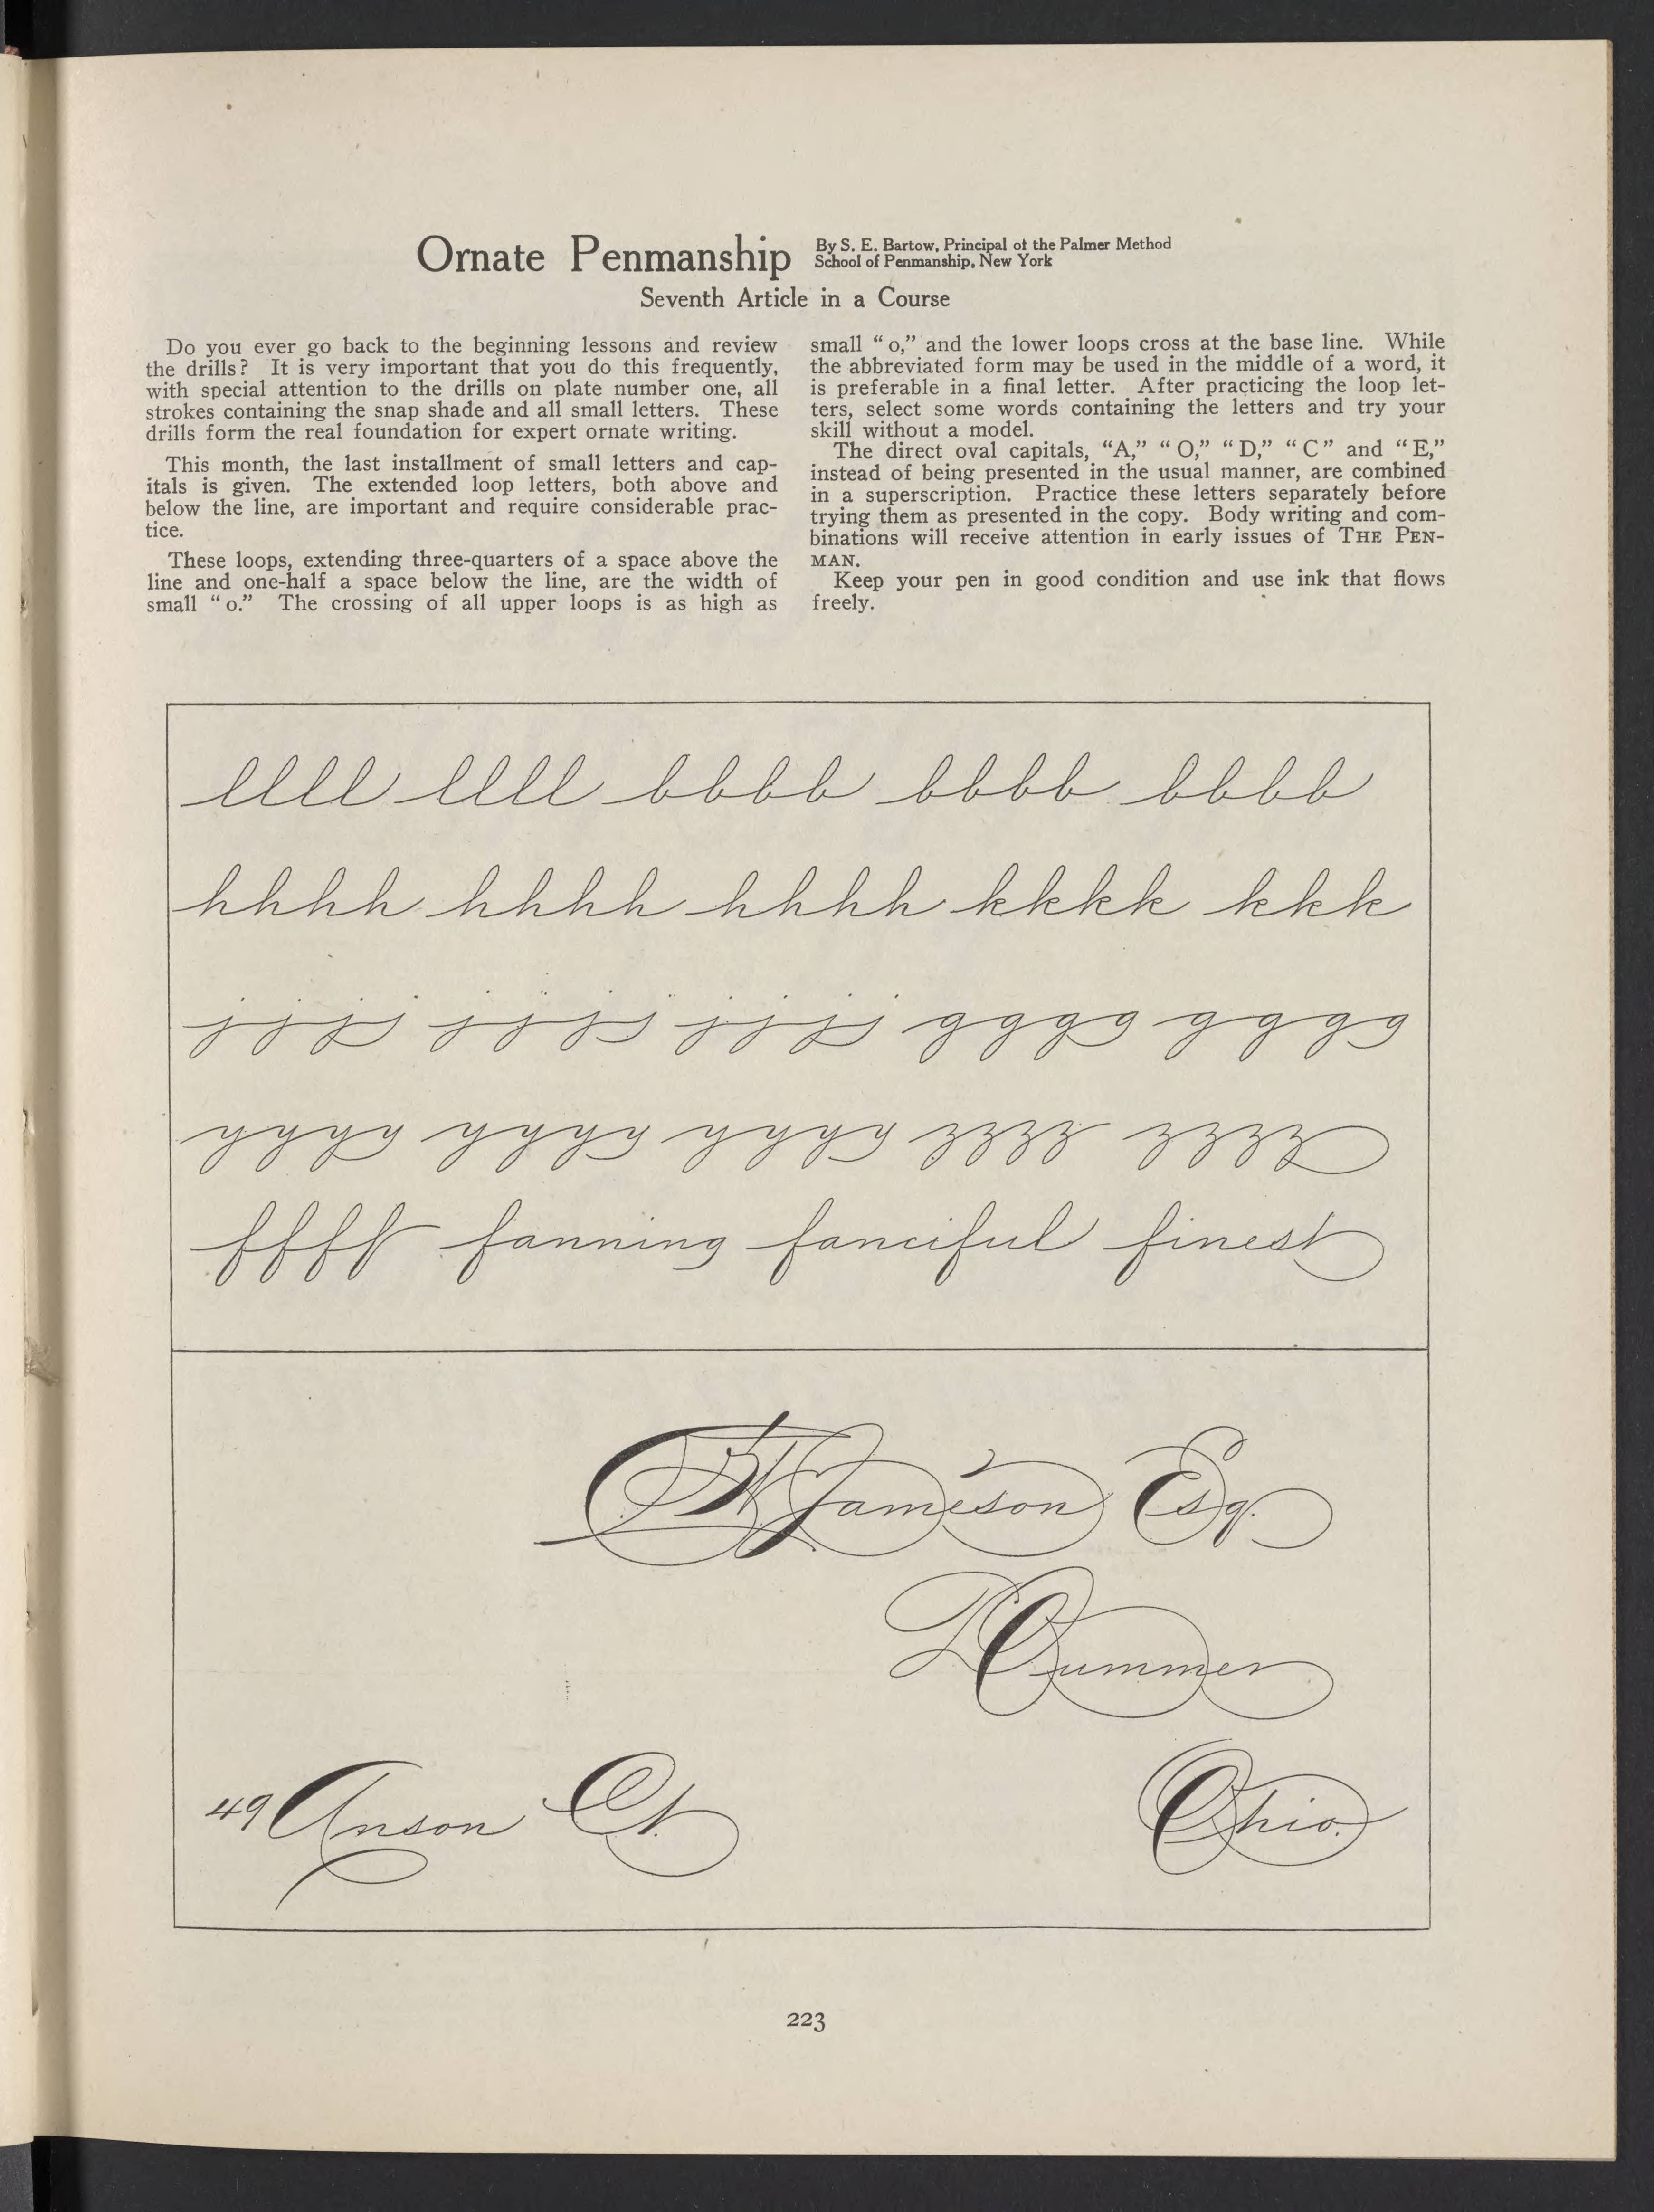 Ornate Penmanship
By S. E. Bartow, Principal of the Palmer Method
School of Penmanship, New York
Seventh Article in a Course
Do you ever go back to the beginning lessons and review
the drills? It is very important that you do this frequently,
with special attention to the drills on plate number one, all
strokes containing the snap shade and all small letters. These
drills form the real foundation for expert ornate writing.
This month, the last installment of small letters and cap-
itals is given. The extended loop letters, both above and
below the line, are important and require considerable prac-
tice.
These loops, extending three-quarters of a space above the
line and one-half a space below the line, are the width of
small “o.” The crossing of all upper loops is as high as
small “o,” and the lower loops cross at the base line. While
the abbreviated form may be used in the middle of a word, it
is preferable in a final letter. After practicing the loop let-
ters, select some words containing the letters and try your
skill without a model.
The direct oval capitals, “A,” “O,” “D,” “C” and “E,”
instead of being presented in the usual manner, are combined
in a superscription. Practice these letters separately before
trying them as presented in the copy. Body writing and com-
binations will receive attention in early issues of THE PEN-
MAN.
Keep your pen in good condition and use ink that flows
freely.
llll llll bbbb bbbb bbbb
hhhh hhhh hhhh kkkk kkk
jjjj jjjj jjjj gggg gggg
yyyy yyyy yyyy zzzz zzzz
ffff fanning fanciful finest
Jameson Esq.
Dummer
49 Anson Ct.
Ohio.
223